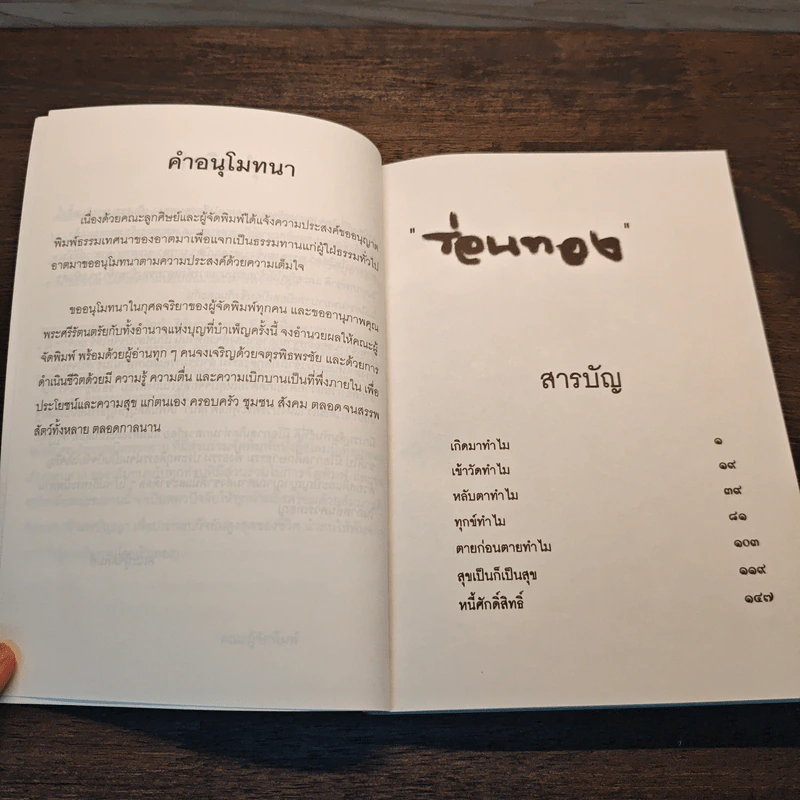 คำอนุโมทนา
เนื่องด้วยคณะลูกศิษย์และผู้จัดพิมพ์ได้แจ้งความประสงค์ขออนุญาต
พิมพ์ธรรมเทศนาของอาตมาเพื่อแจกเป็นธรรมทานแก่ผู้ใฝ่ธรรมทั่วไป
อาตมาขออนุโมทนาตามความประสงค์ด้วยความเต็มใจ
ขออนุโมทนาในกุศลจริยาของผู้จัดพิมพ์ทุกคน และขออานุภาพคุณ
พระศรีรัตนตรัยกับทั้งอำนาจแห่งบุญที่บำเพ็ญครั้งนี้ จงอำนวยผลให้คณะผู้
จัดพิมพ์ พร้อมด้วยผู้อ่านทุก ๆ คนจงเจริญด้วยจตุรพิธพรชัย และด้วยการ
ดำเนินชีวิตด้วยมี ความรู้ ความตื่น และความเบิกบานเป็นที่พึ่งภายใน เพื่อ
ประโยชน์และความสุข แก่ตนเอง ครอบครัว ชุมชน สังคม ตลอดจนสรรพ
สัตว์ทั้งหลาย ตลอดกาลนาน
"ร่อนทอง"
สารบัญ
เกิดมาทำไม ๑
เข้าวัดทำไม ๑๙
หลับตาทำไม ๓๙
ทุกข์ทำไม ๘๑
ตายก่อนตายทำไม ๑๐๓
สุขเป็นก็เป็นสุข ๑๑๙
หนี้ศักดิ์สิทธิ์ ๑๔๗